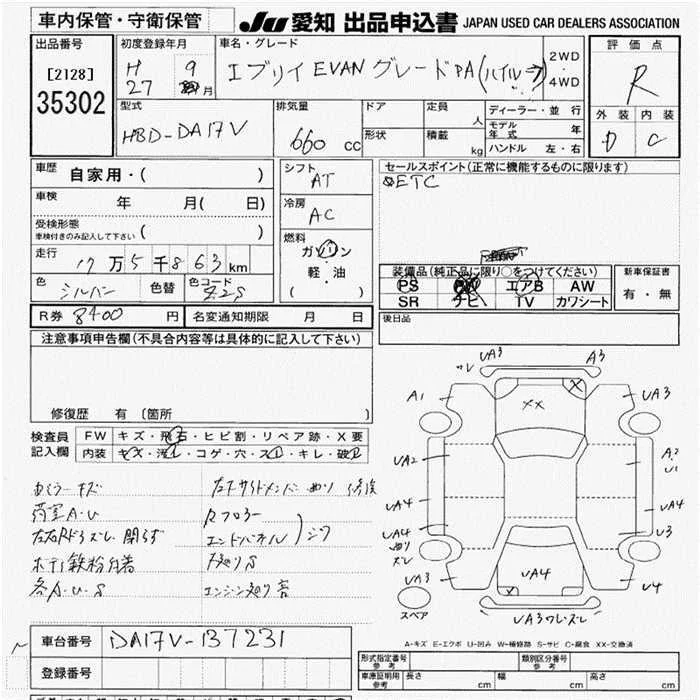 車内保管・守衛保管
JU 愛知 出品申込書 JAPAN USED CAR DEALERS ASSOCIATION
出品番号
[2128]
35302
初度登録年月
H 27 9 月
車名・グレード
エブリイ EVAN グレード PA (ハイルーフ)
2WD
・
4WD
評価点
R
外装 内装
D C
型式
HBD-DA17V
排気量
660 cc
ドア
定員
人
形状
積載
kg
ディーラー・並行
モデル年式 年
ハンドル 左・右
車歴
自家用・( )
車検
年 月( 日)
受検形態
車検付きのみ記入して下さい ( )
走行
17万5千863km
色
シルバー
色替
色コード
Z2S
シフト
AT
冷房
AC
燃料
ガソリン
軽・油
( )
セールスポイント(正常に機能するものに限ります)
ETC
装備品(純正品に限り○をつけてください)
PS エアB AW
SR ナビ TV カワシート
新車保証書
有・無
R券 8400 円
名変通知期限 月 日
後日品
注意事項申告欄(不具合内容等は具体的に記入して下さい)
修復歴 有 〔箇所 〕
検査員
記入欄
FW キズ・飛石・ヒビ割・リペア跡・X要
内装 キズ・汚レ・コゲ・穴・スレ・キレ・破レ
荷室A・U
Rフロアー
エンドパネル
ジワ
ボデー鉄粉付着
下廻りS
各A・U・S
エンジン廻り書
UA3
A3
ズレ
A1
XX
X
UA3
UA2
A2
U1
UA4
UA4
UA4
U3
廻り
ズレ
UA3
UA4
X
U4
スペア
UA3ワレズレ
A-キズ E-エクボ U-凹み W-補修跡 S-サビ C-腐食 XX-交換済
車台番号 DA17V-137231
登録番号
形式指定番号
参考
類別区分番号
参考
車庫証明用
参考
長さ cm
幅 cm
高さ cm